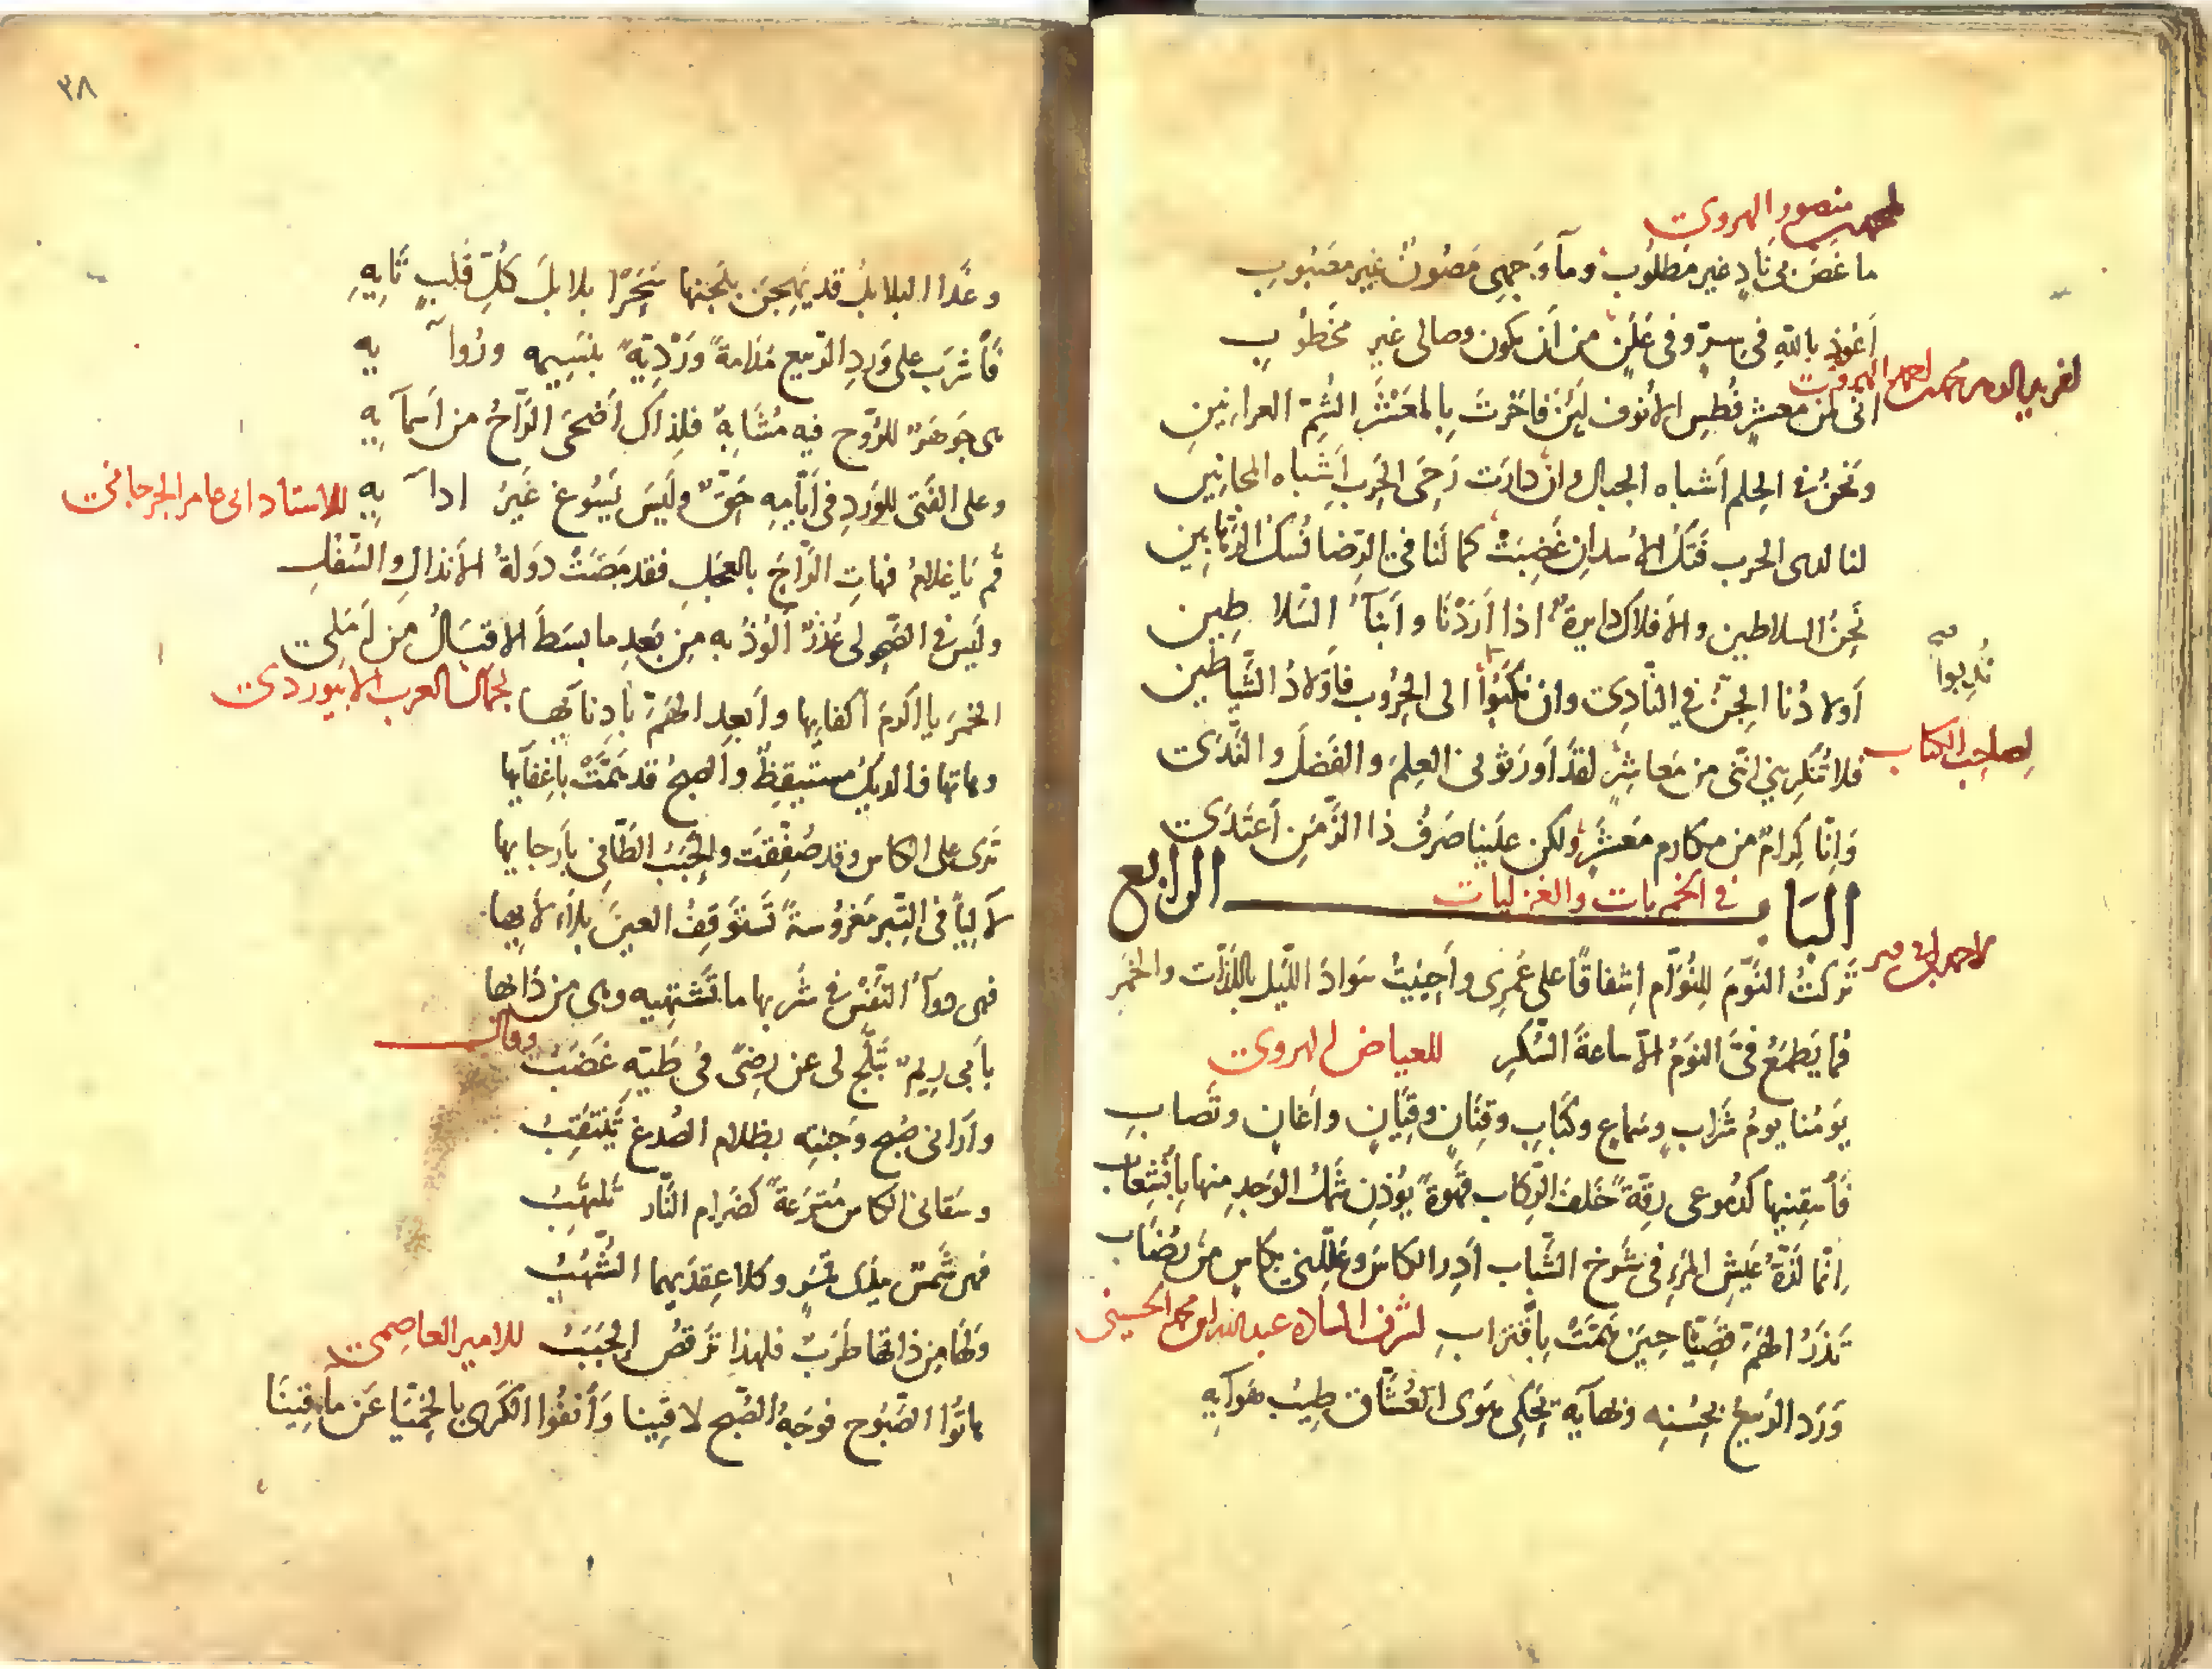 منصور الهروي
ما غَصَّ بي نادٍ غير مطلوب وما وجهي مصون غير مصبوب
اعوذ بالله في سرٍّ وفي علنٍ من ان يكون وصالي غير مخطوب
انى لمن معشرٍ فُطس الانوف لئن فاخرتَ بالمعشر الشمّ العرانينِ
ونحن في الحلم اشباه الجبال وان دارت رحى الحرب اشباه المجانين
لنا لدى الحرب فتك الاسد ان غضبت كما لنا في الرضا نسك الرهابين
نحن السلاطين والافلاك دايرة اذا اردنا وابنآء السلاطين
اولادنا الجن في النادى وان نكبوا الى الحروب فاولاد الشياطين
ندبوا صح
لصاحب الكتاب
فلا تنكريني انني من معاشرٍ لقد اورثوني العلم والفضل والندى
وانّا كرام من مكارم معشرٍ ولكن علينا صرف ذا الزمن اعتدى
الباب الرابع
في الخمريات والغزليات
تركتُ النوم للنوّام اشفاقًا على عمرى واحييتُ سواد الليل باللذات والخمر
فما يطمع فيّ النوم الا ساعة السكر للعياض الهروى
يومنا يوم شراب وسماع وكتاب وقنان وقيان واغان وتصاب
فاسقنيها كدموعى رقةً خلف الركاب قهوةً يؤذن شمل الوجد منها بانشعاب
انما لذة عيش المرء في شرخ الشباب ادر الكاس وعللني بكاس من رضاب
تذر الهمّ قصيّا حين همّت باقتراب لشرف السادة عبدالله بن محمد الحسيني
ورد الربيع بحسنه وبهآيه يحكى هوى العشاق طيب هوآيه
٣٨
وغدا البلابل قد يهجن بلحنها سَحَرًا بلابل كلّ قلبٍ تايهِ
فاشرب على ورد الربيع مدامةً ورديةً بنسيمه وروآيه
هى جوهر للروح فيه مشابهٌ فلذاك اضحى الراح من اسمآيه
وعلى الفتى للورد في ايامه حقٌّ وليس يسوغ غير ادآيه للاستاد ابى عامر الجرجانى
قم يا غلام فهات الراح بالعجل فقد مضت دولة الانذال والسفل
وليس في الصحو لى عذر الوذ به من بعد ما بسط الاقبال من املى
الخمر يا اكرم اكفايها وابعد الهمّ بادنآيها لجمال العرب الابيوردى
وهاتها فالديك مستيقظ والصبح قد همّت باغفآيها
ترى على الكاس وقد صفقت والحبب الطافى بارجايها
لآلياً فى التبر مغروسة تستوقف العين بلألايها
فهى دوآء النفس في شربها ما تشتهيه وهى من دايها
وقال
بابى ريم تبلّج لى عن رضىً فى طيه غضبُ
وارانى صبح وجنته بظلام الصدغ ينتقبُ
وسقانى الكاس مترعةً كضرام النار تلتهبُ
فهى شمس فى يدى قمر وكلا عقديهما الشهبُ
ولها من ذاتها طرب فلهذا ترقص الحببُ للامير العاصمى
هاتوا الصبوح فوجه الصبح لاقينا وانفوا الكرى بالحميا عن مآقينا